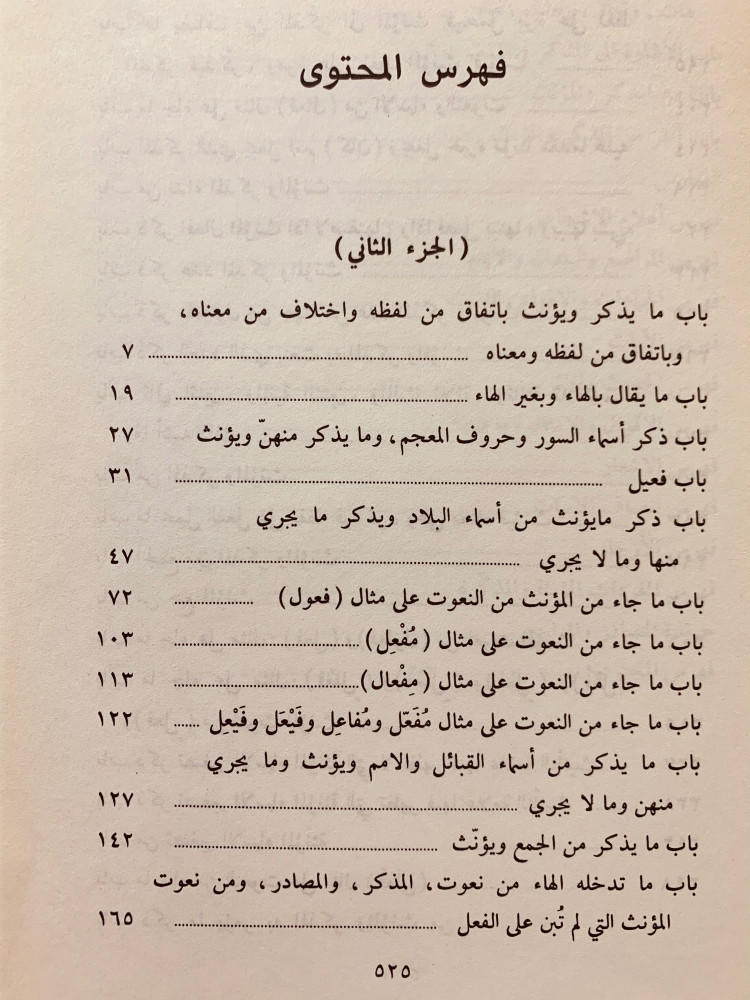 فهرس المحتوى
(الجزء الثاني)
باب ما يذكر ويؤنث باتفاق من لفظه واختلاف من معناه،
وباتفاق من لفظه ومعناه ........ ٧
باب ما يقال بالهاء وبغير الهاء ........ ١٩
باب ذكر أسماء السور وحروف المعجم، وما يذكر منهنّ ويؤنث ٢٧
باب فعيل ........ ٣١
باب ذكر مايؤنث من أسماء البلاد ويذكر ما يجري
منها وما لا يجري ........ ٤٧
باب ما جاء من المؤنث من النعوت على مثال (فعول) ........ ٧٢
باب ما جاء من النعوت على مثال (مُفْعِل) ........ ١٠٣
باب ما جاء من النعوت على مثال (مِفْعال) ........ ١١٣
باب ما جاء من النعوت على مثال مُفَعّل ومُفاعِل وفَيْعَل وفَيْعِل ...... ١٢٢
باب ما يذكر من أسماء القبائل والامم ويؤنث وما يجري
منهن وما لا يجري ........ ١٢٧
باب ما يذكر من الجمع ويؤنّث ........ ١٤٢
باب ما تدخله الهاء من نعوت، المذكر، والمصادر، ومن نعوت
المؤنث التي لم تُبن على الفعل ........ ١٦٥
٥٢٥